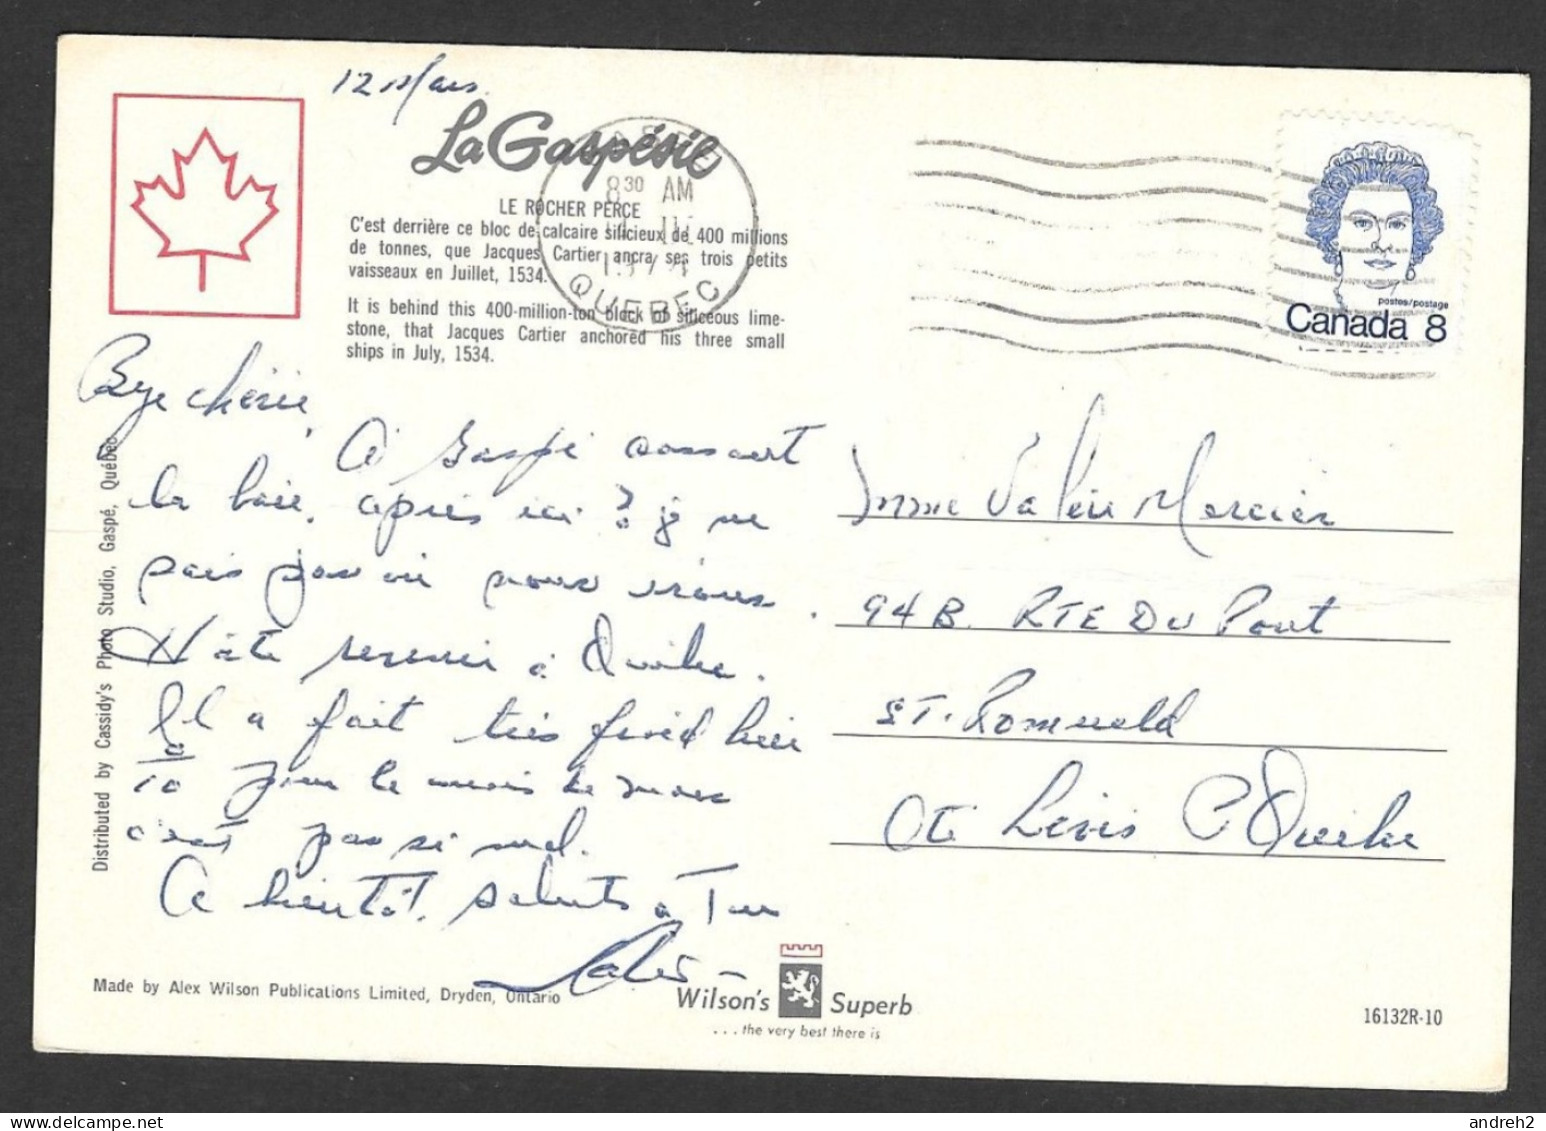 12 Mars
La Gaspésie
8 30 AM
QUEBEC
LE ROCHER PERCE
C'est derrière ce bloc de calcaire silicieux de 400 millions
de tonnes, que Jacques Cartier ancra ses trois petits
vaisseaux en Juillet, 1534.
It is behind this 400-million-ton block of siliceous lime-
stone, that Jacques Cartier anchored his three small
ships in July, 1534.
postes/postage
Canada 8
Bye chérie,
A Gaspé
la baie, après ici ? je ne
pas
Hâte revenir à Québec.
Il a fait très froid hier
10 pour le mois de mars
c'est pas si mal.
A bientôt, saluts à
Mme Valéie Mercier
94 B. RTE DU Pont
ST. Romuald
Cté Lévis P Québec
Distributed by Cassidy's Photo Studio, Gaspé, Québec
Made by Alex Wilson Publications Limited, Dryden, Ontario
Wilson's Superb
... the very best there is
16132R-10
andreh2